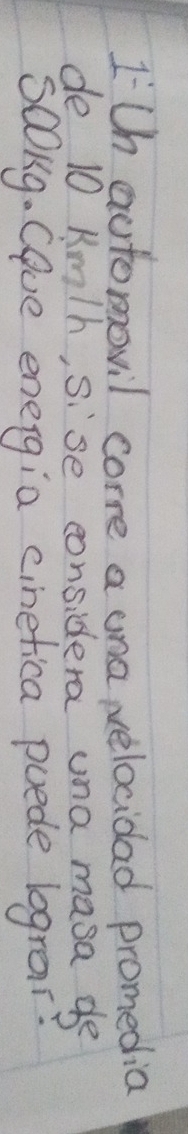 1- Un automovil corre a una velocidad promedia
de 10 Km/h, si se considera una masa de
500Kg. ¿Que energía cinetica puede lograr.